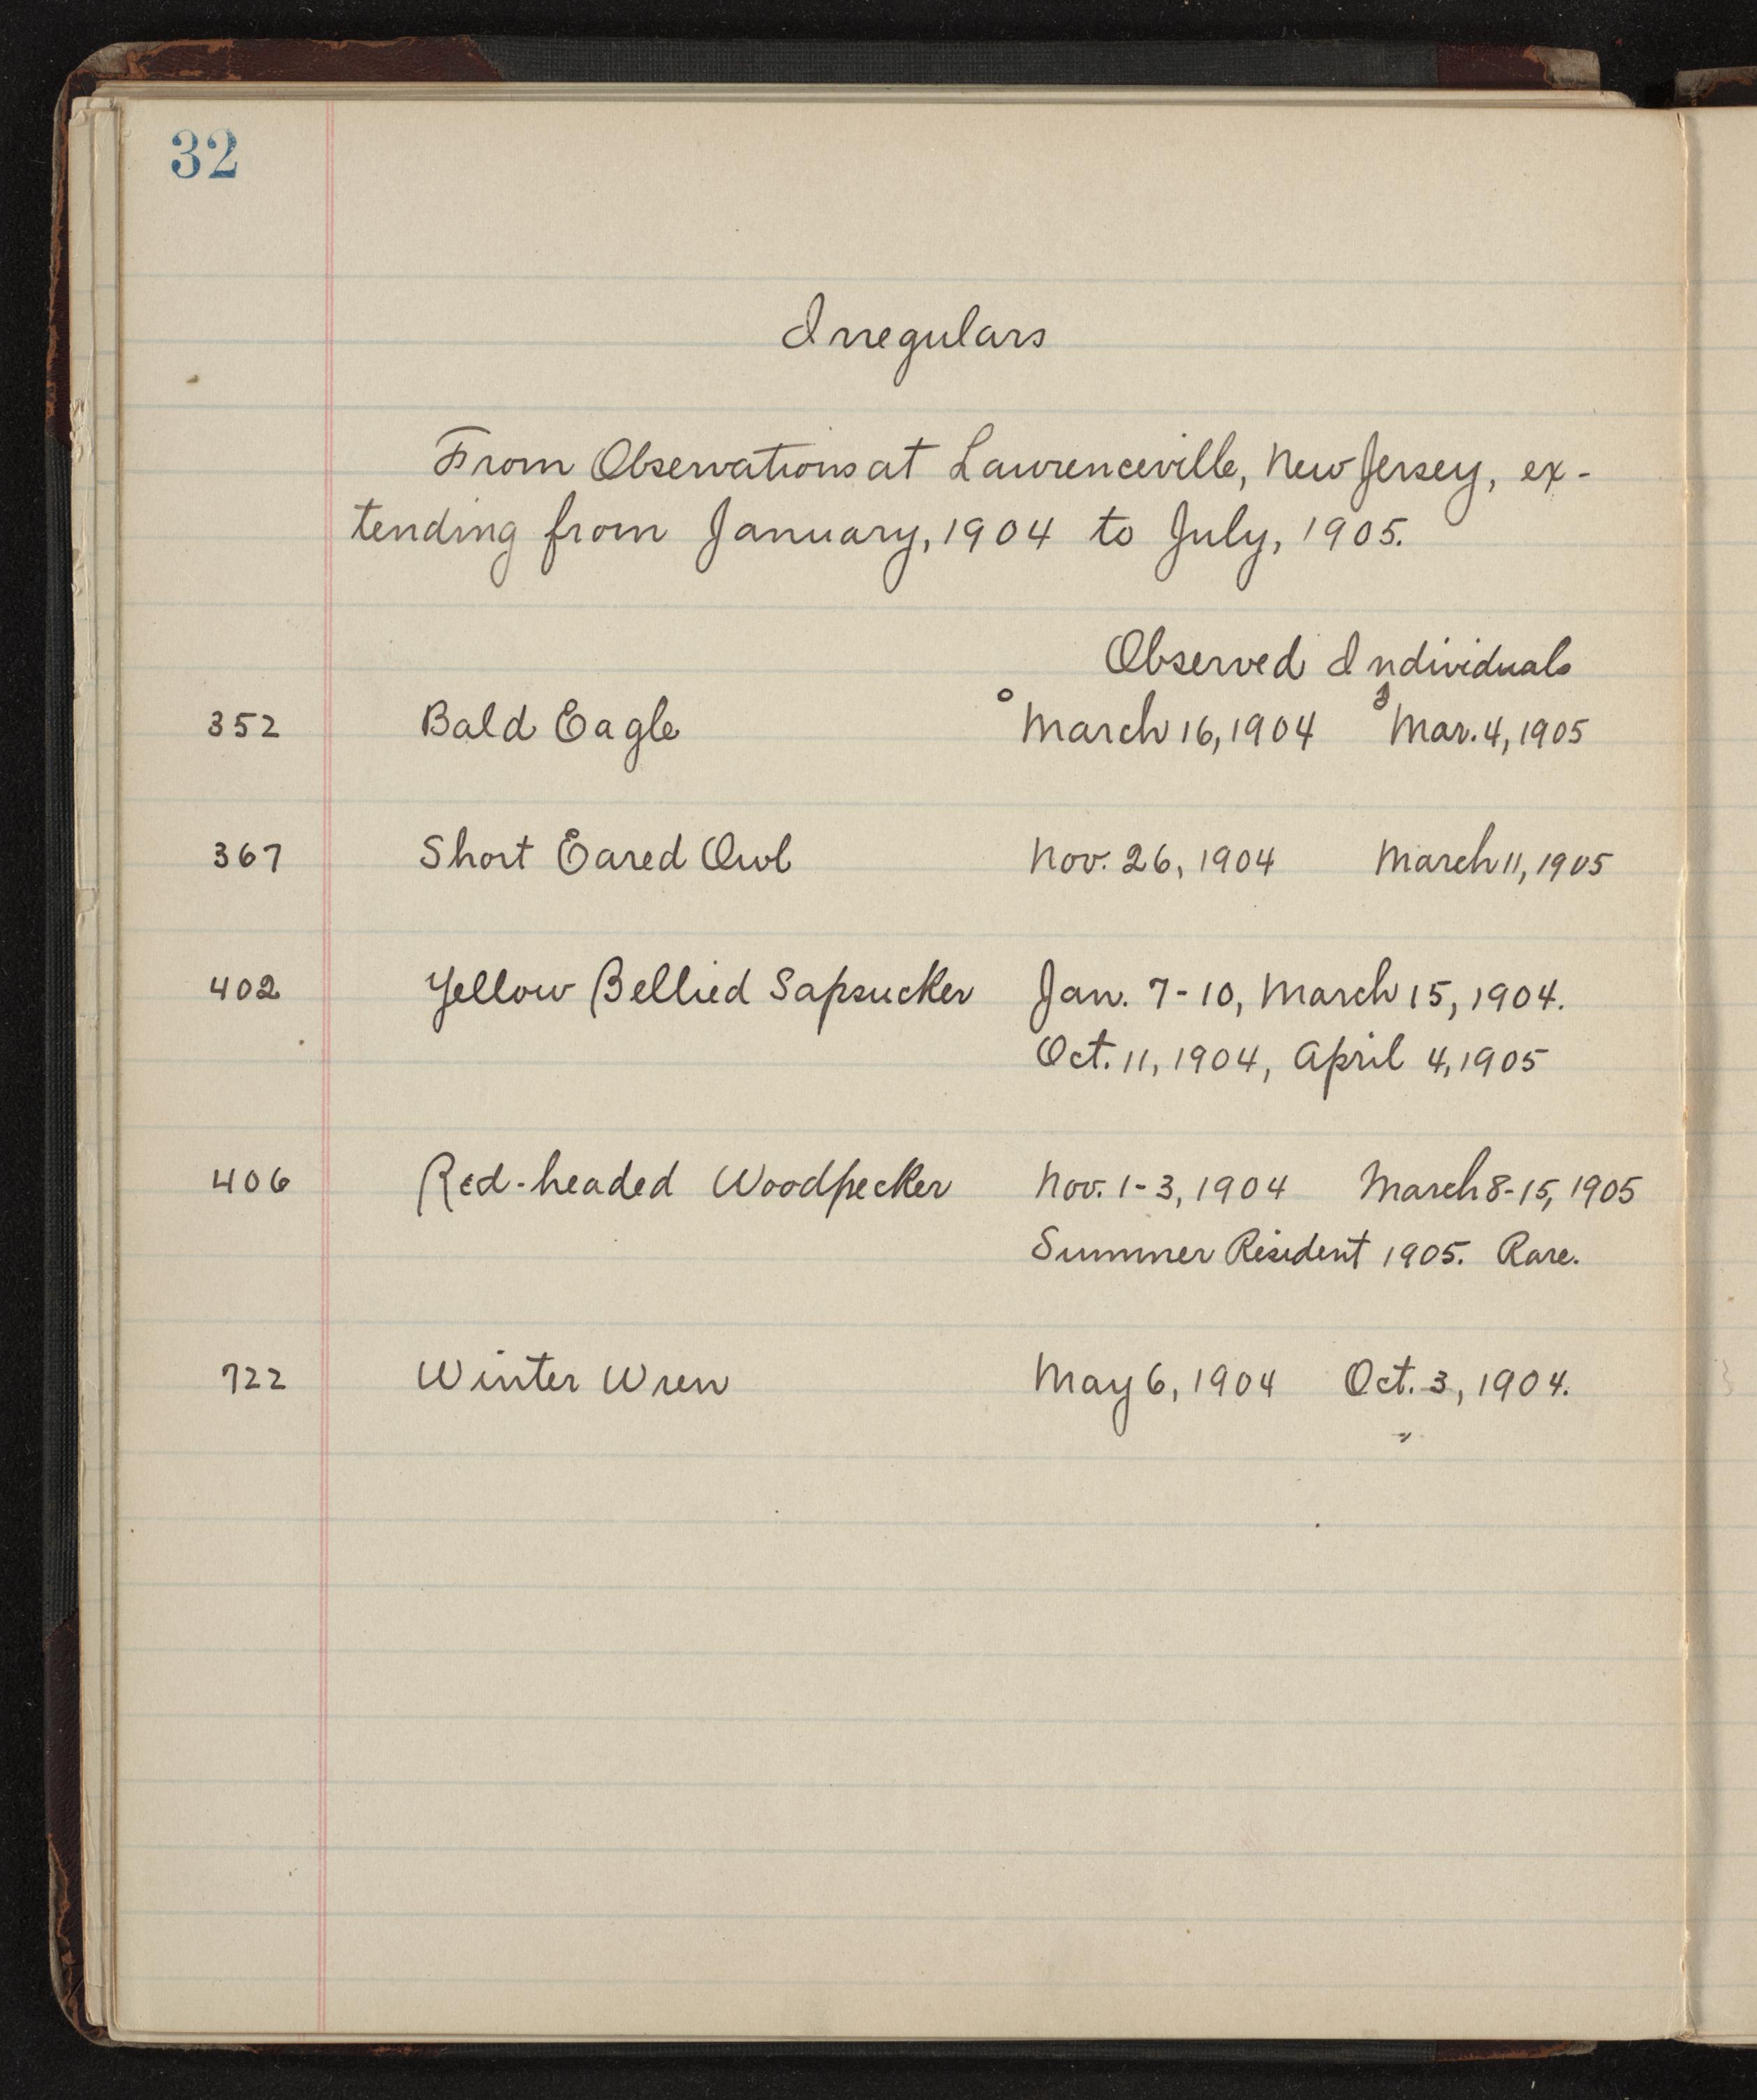 32
Irregulars
From Observations at Lawrenceville, New Jersey, ex-
tending from January, 1904 to July, 1905.
Observed Individuals
352 Bald Eagle March 16, 1904 Mar. 4, 1905
367 Short Eared Owl Nov. 26, 1904 March 11, 1905
402 Yellow Bellied Sapsucker Jan. 7-10, March 15, 1904.
Oct. 11, 1904, April 4, 1905
406 Red-headed Woodpecker Nov. 1-3, 1904 March 8-15, 1905
Summer Resident 1905. Rare.
722 Winter Wren May 6, 1904 Oct. 3, 1904.